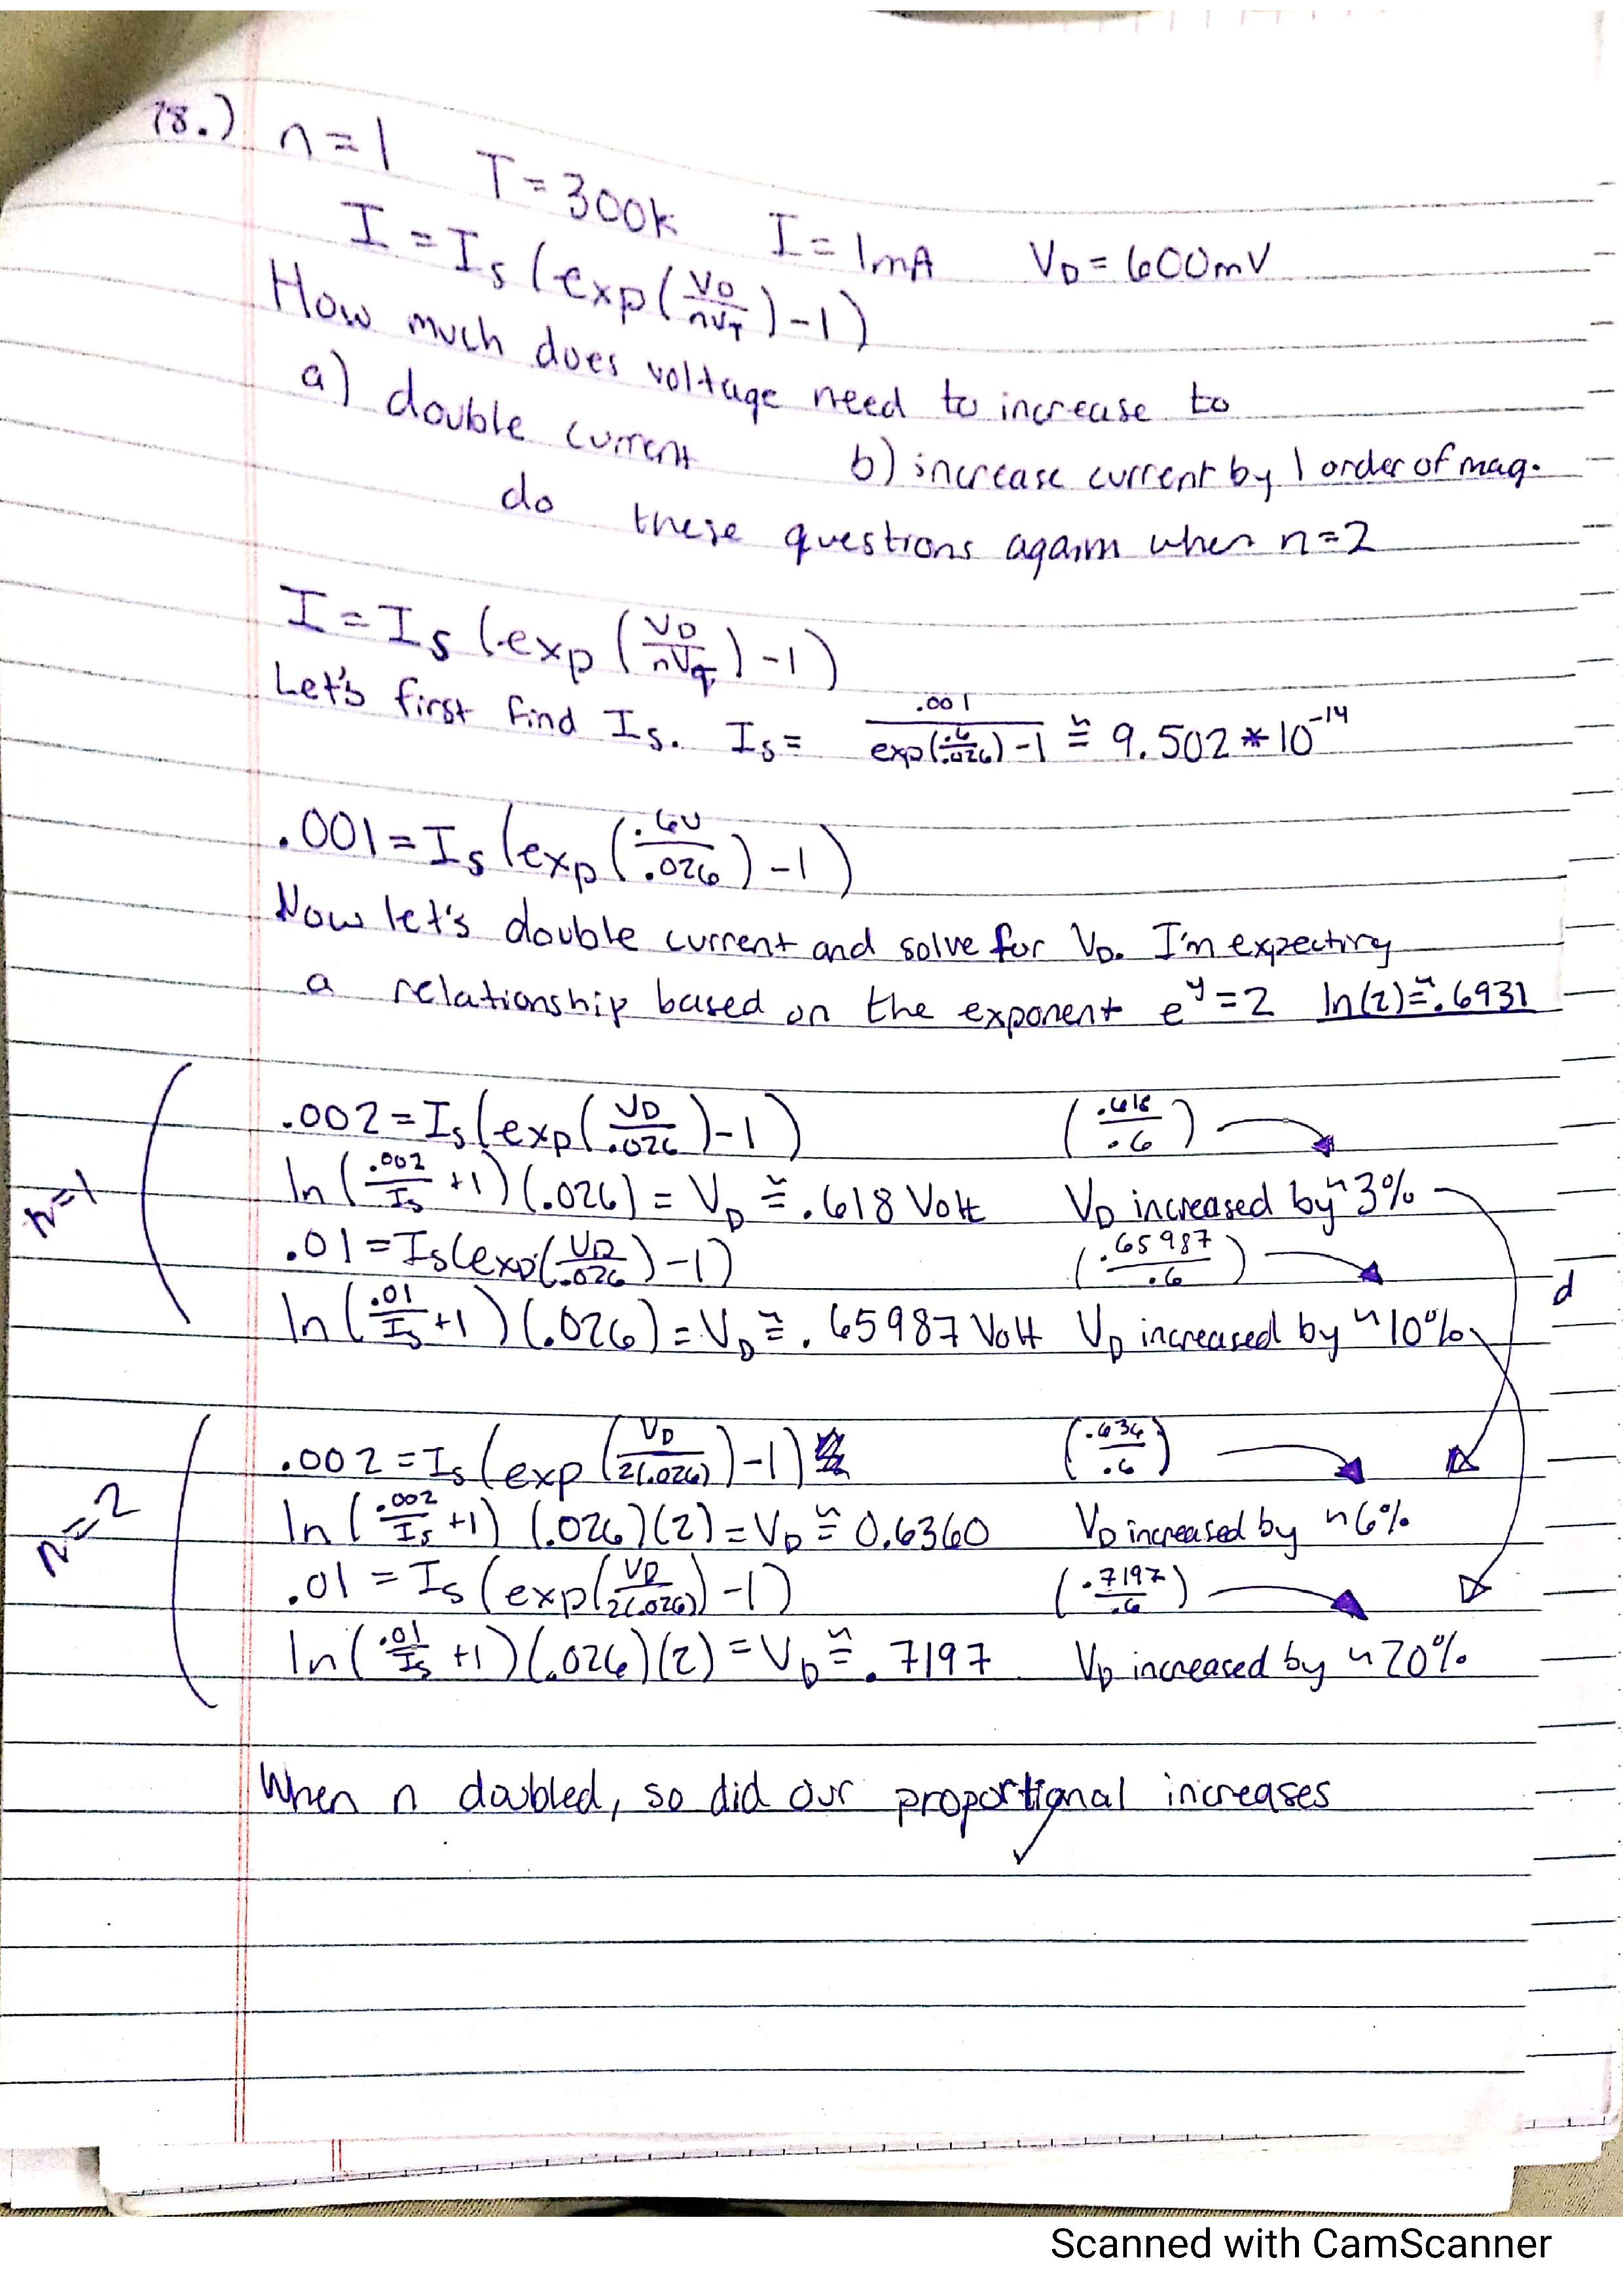 78.) n=1 T=300k I=1mA V_D=600mV
I=I_s(exp(V_D/nV_T)-1)
How much does voltage need to increase to
a) double current b) increase current by 1 order of mag.
do these questions again when n=2
I=I_s(exp(V_D/nV_T)-1)
Let's first find I_s. I_s= .001/(exp(.6/.026)-1) ≅ 9.502*10^-14
.001=I_s(exp(.60/.026)-1)
Now let's double current and solve for V_D. I'm expecting
a relationship based on the exponent e^y=2 ln(2)≅.6931
n=1
.002=I_s(exp(V_D/.026)-1) (.618/.6)
ln(.002/I_s+1)(.026)=V_D≅.618 Volt V_D increased by ~3%
.01=I_s(exp(V_D/.026)-1) (.65987/.6)
d
ln(.01/I_s+1)(.026)=V_D≅.65987 Volt V_D increased by ~10%
n=2
.002=I_s(exp(V_D/2(.026))-1) (.636/.6)
ln(.002/I_s+1)(.026)(2)=V_D≅0.6360 V_D increased by ~6%
.01=I_s(exp(V_D/2(.026))-1) (.7197/.6)
ln(.01/I_s+1)(.026)(2)=V_D≅.7197 V_D increased by ~20%
When n doubled, so did our proportional increases
✓
Scanned with CamScanner